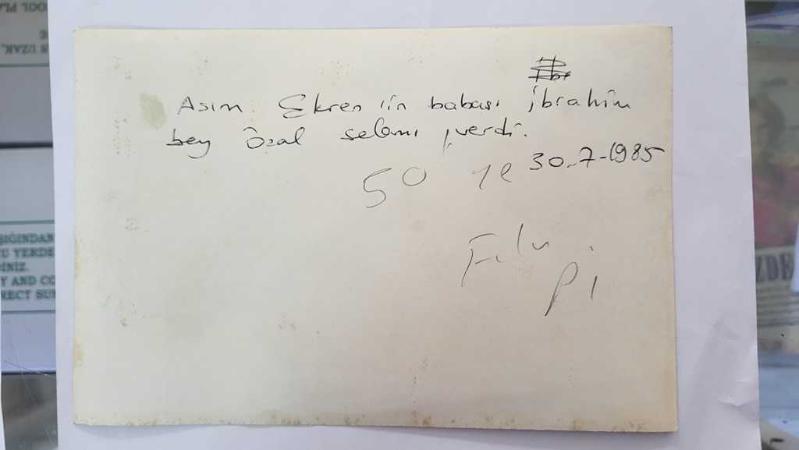 OOL PLA
UZAK,
Asım Ekren'in babası İbrahim
bey Özal selamı verdi.
30-7-1985
50
Pi
IŞIĞINDAN
U YERDE
DİNİZ.
Y AND CO
RECT SUN
ZDE